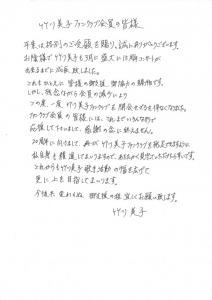 竹川美子ファンクラブ会員の皆様
平素は格別のご愛顧を賜り、誠にありがとうございます。
お陰様で竹川美子も3月に盛大に15周年コンサートが
出来るまでに成長致しました。
これもひとえに皆様の御支援、御協力の賜物です。
しかし、残念ながら会員の減少により
この度、一度竹川美子ファンクラブを閉会せざるを得なくなりました。
ファンクラブ会員の皆様には、これまでいろいろな形で
応援して下さいまして、感謝の念に絶えません。
20周年に向けまして、再び竹川美子ファンクラブを発足出来ますように
私自身も精進してまいりますので、あたたかく見守っていただけたら幸いです。
これからも竹川美子歌手活動の幅を広げて
更に上を目指してまいります。
今後共変わらぬ御支援の程宜しくお願い致します。
竹川美子